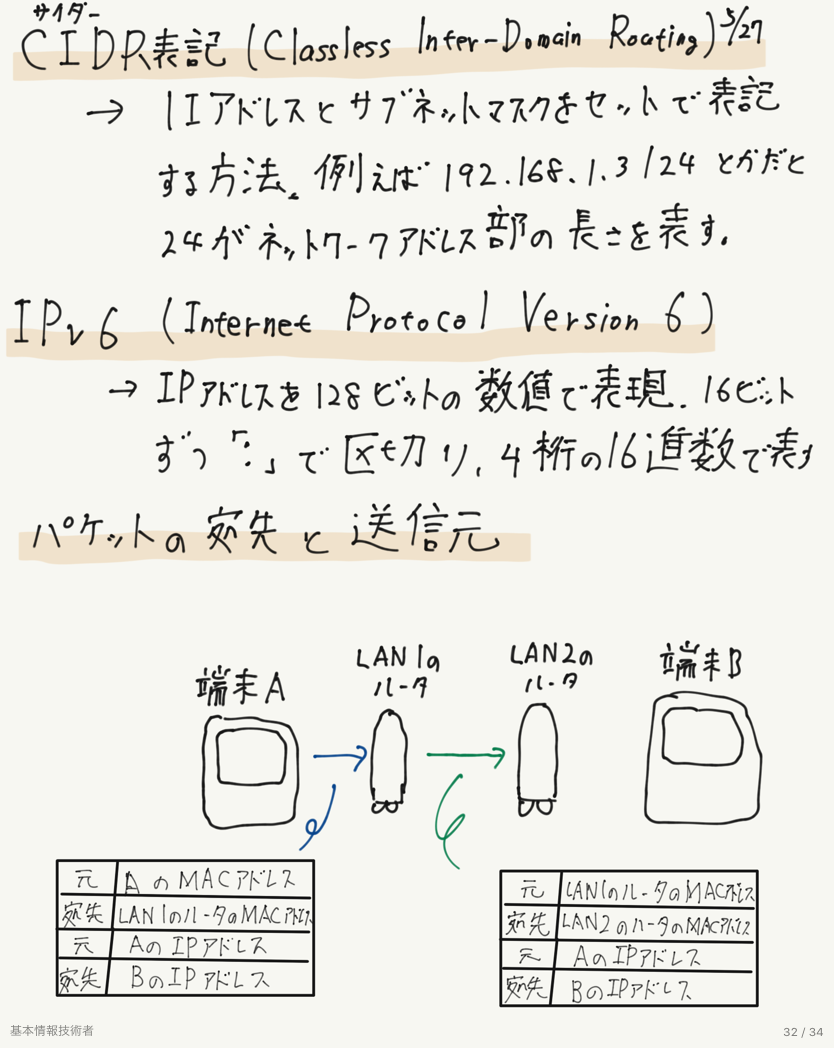 サイダー
CIDR表記 (Classless Inter-Domain Routing) 5/27
→ IIアドレスとサブネットマスクをセットで表記
する方法。例えば 192.168.1.3/24 とかだと
24がネットワークアドレス部の長さを表す。
IPv6 (Internet Protocol Version 6)
→ IPアドレスを128ビットの数値で表現. 16ビット
ずつ「:」で区切り、4桁の16進数で表す
パケットの宛先と送信元
端末A
LAN1の
ルータ
LAN2の
ルータ
端末B
元 AのMACアドレス
宛先 LAN1のルータのMACアドレス
元 AのIPアドレス
宛先 BのIPアドレス
元 LAN1のルータのMACアドレス
宛先 LAN2のルータのMACアドレス
元 AのIPアドレス
宛先 BのIPアドレス
基本情報技術者
32 / 34